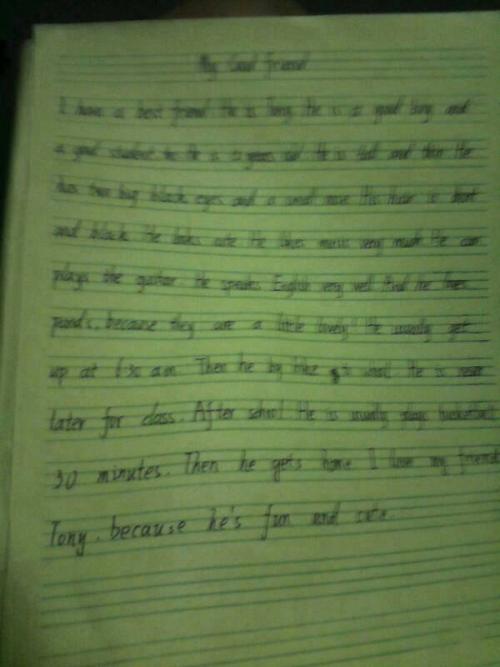 My Good Friend
I have a best friend. He is Tony. He is a good boy and
a good student. He is years old. He is tall and thin. He
has two big black eyes and a small nose. His hair is short
and black. He looks cute. He likes music very much. He can
plays the guitar. He speaks English very well. And he loves
because they are a little lovely. He usually get
up at 6:30 am. Then he by bike to school. He is never
later for class. After school He is usually plays basketball
30 minutes. Then he gets home. I love my friend
Tony. because he's fun and cute.